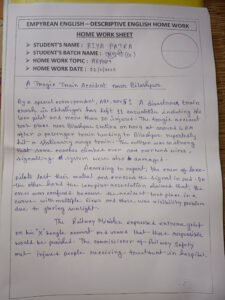 EMPYREAN ENGLISH – DESCRIPTIVE ENGLISH HOME WORK
HOME WORK SHEET
➤ STUDENT'S NAME : RIYA PATRA
➤ STUDENT'S BATCH NAME :
➤ HOME WORK TOPIC : REPORT
➤ HOME WORK DATE :
A Tragic Train Accident near Bilashpur
By a special correspondent, ABC. A disastrous train
crash in Chhatisgarh has left in including the
loco pilot and more than 20 injured. The tragic accident
took place near Bilashpur station on at around 4 P.M
after a passenger train to Bilashpur repeatedly
hit a stationary cargo train. The collision was so strong
that some coaches climbed over and overhead wires,
signalling system were also damaged.
According to expert, the crew of loco-
pilots lost their and crossed the signal in red. On
the other hand the accident took place in a
curve with multiple lines and there was visibility problem
due to glaring sunlight.
The Railway Minister expressed extreme grief
on his 'X' account and vowed that those responsible
would be punished. The commissioner of Railway Safety
met injured people receiving treatment in hospital.